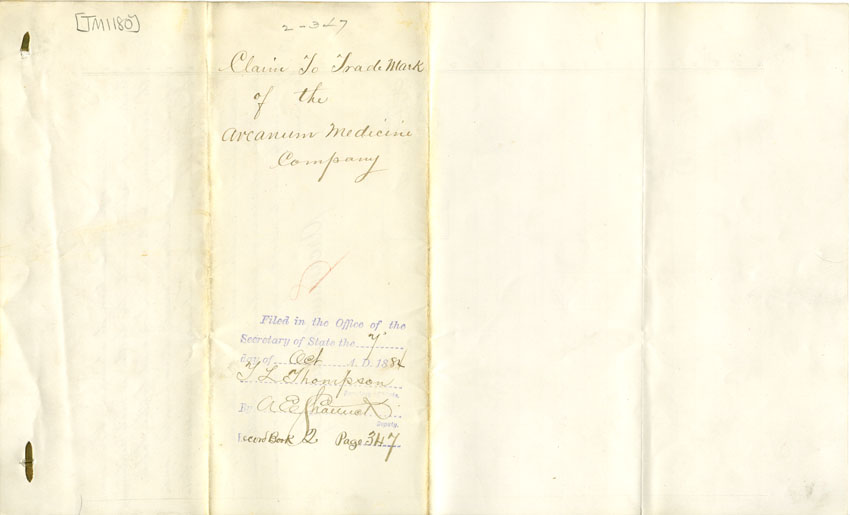 [TM1180]
2-347
Claim To Trade Mark
of the
Arcanum Medicine
Company
Filed in the Office of the
Secretary of State the 7
day of Oct A. D. 1884
T L Thompson
By A E Shattuck
Deputy.
Record Book 2 Page 347